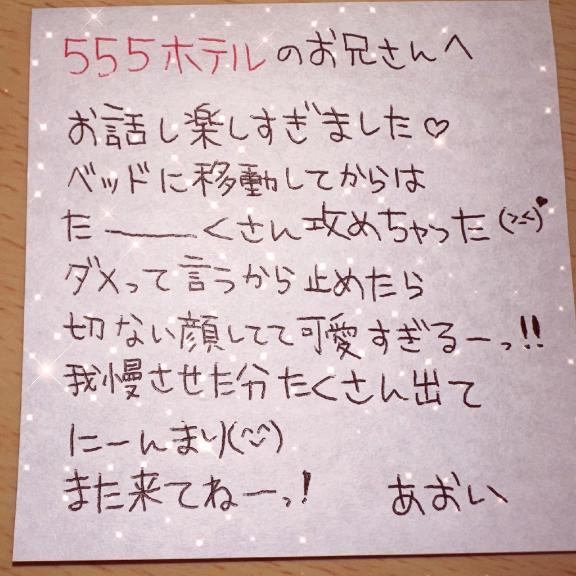 555ホテルのお兄さんへ
お話し楽しすぎました♡
ベッドに移動してからは
た――くさん攻めちゃった(>_<)♥
ダメって言うから止めたら
切ない顔してて可愛すぎるーっ!!
我慢させた分たくさん出て
にーんまり(^^)
また来てねーっ! あおい